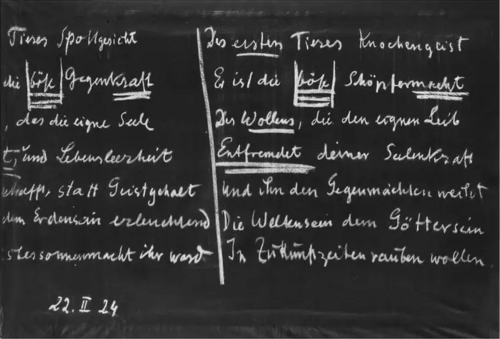 Tieres Spottgesicht
die böse Gegenkraft
, das die eigne Seele
t; und Lebensleerheit
schafft, statt Geistgehalt
dem Erdensein erleuchtend
stersonnenmacht ihr ward
22.II 24
Des ersten Tieres Knochengeist
Er ist die böse Schöpfermacht
Des Wollens, die den eignen Leib
Entfremdet deiner Seelenkraft
Und ihn den Gegenmächten weiht
Die Weltensein dem Göttersein
In Zukunftzeiten rauben wollen.